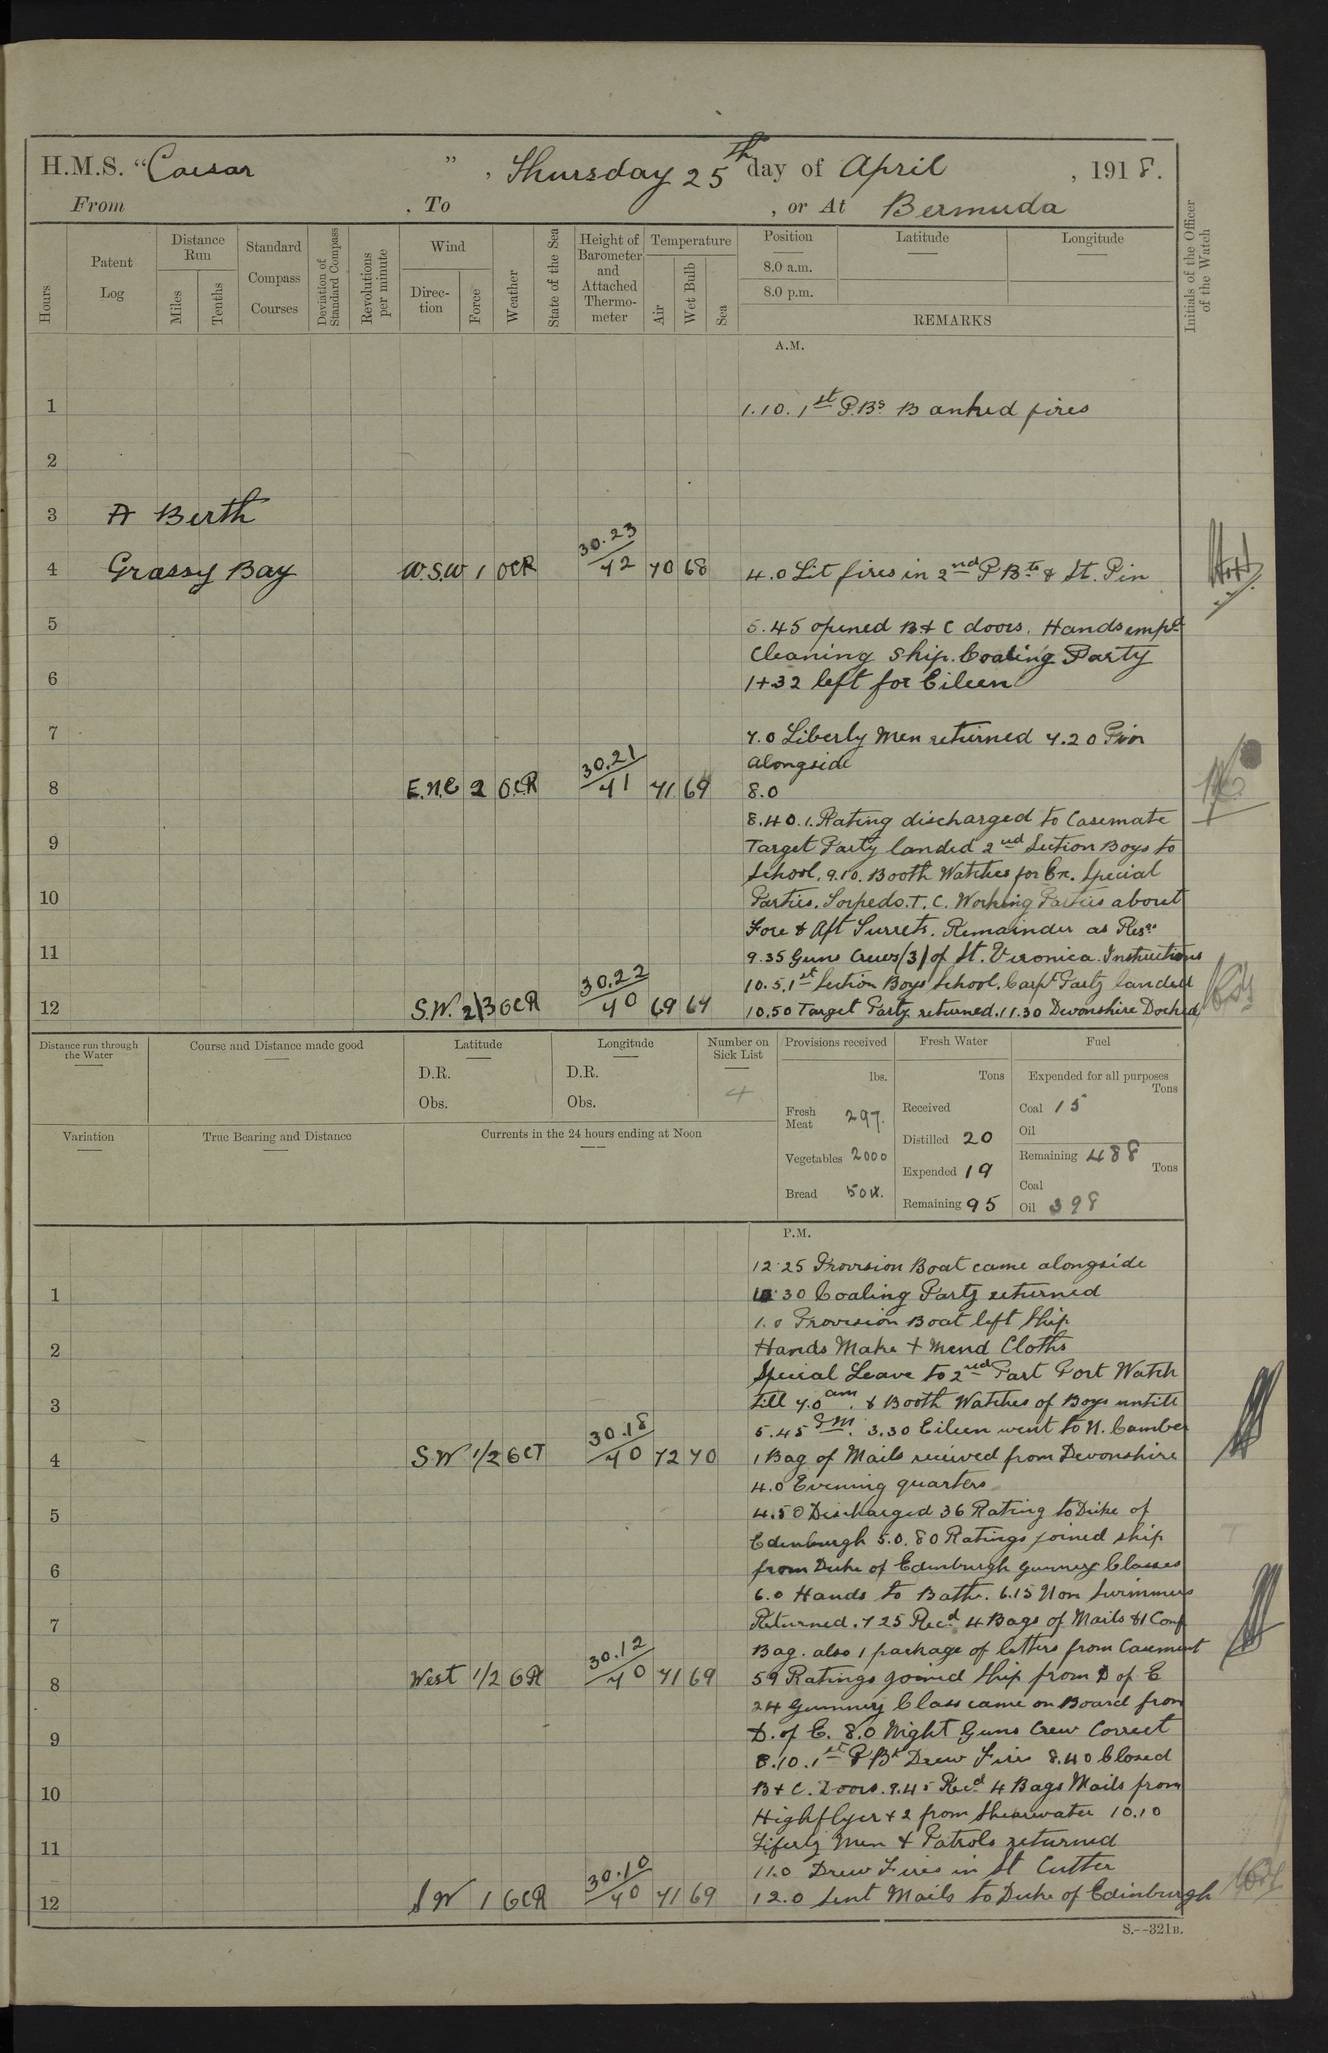 H.M.S. "Caesar", Thursday 25th day of April, 1918.
From . To , or At Bermuda
Hours
Patent Log
Distance Run
Miles
Tenths
Standard Compass Courses
Deviation of Standard Compass
Revolutions per minute
Wind
Direction
Force
Weather
State of the Sea
Height of Barometer and Attached Thermometer
Temperature
Air
Wet Bulb
Sea
Position
8.0 a.m.
8.0 p.m.
Latitude
Longitude
REMARKS
Initials of the Officer of the Watch
A.M.
1 1.10. 1st P.Bs Banked fires
2
3 A Berth
4 Grassy Bay W.S.W 1 OCR 30.23/72 70 68 4.0 Lit fires in 2nd P Bts & St. Pin
5 5.45 opened B & C doors. Hands empd
Cleaning Ship. Coaling Party
6 1+32 left for Eileen
7 7.0 Liberty Men returned 7.20 Pin
alongside
8 E.N.E 2 O.C.R 30.21/71 71 69 8.0
8.40. 1. Rating discharged to Casemate
9 Target Party landed 2nd Section Boys to
School. 9.10. Booth Watches for Ex. Special
10 Parties. Torpedo. T. C. Working Parties about
Fore & Aft Turrets. Remainder as Reqs
11 9.35 Guns Crews (3) of St. Veronica. Instructions
10.5. 1st Section Boys School. Carpt Party landed
12 S.W. 2/3 OCR 30.22/70 69 67 10.50 Target Party returned. 11.30 Devonshire Docked
Distance run through the Water
Course and Distance made good
Latitude
D.R.
Obs.
Longitude
D.R.
Obs.
Number on Sick List
4
Provisions received
lbs.
Fresh Meat 297.
Vegetables 2000
Bread
Fresh Water
Tons
Received
Distilled 20
Expended 19
Remaining 95
Fuel
Expended for all purposes
Tons
Coal 15
Oil
Remaining 488
Tons
Coal
Oil 398
Variation
True Bearing and Distance
Currents in the 24 hours ending at Noon
P.M.
12.25 Provision Boat came alongside
1 30 Coaling Party returned
1.0 Provision Boat left Ship
2 Hands Make & Mend Cloths
Special Leave to 2nd Part Port Watch
3 till 7.0 am. & Booth Watches of Boys untill
5.45 PM. 3.30 Eileen went to N. Camber
4 S.W 1/2 GCT 30.18/70 72 70 1 Bag of Mails received from Devonshire
4.0 Evening quarters
5 4.50 Discharged 36 Rating to Duke of
Edinburgh 5.0. 80 Ratings joined ship
6 from Duke of Edinburgh Gunnery Classes
6.0 Hands to Bathe. 6.15 Non Swimmers
7 Returned. 7 25 Recd 4 Bags of Mails & 1 Conf
Bag. also 1 package of letters from Casement
8 West 1/2 GR 30.12/70 71 69 59 Ratings joined Ship from D of E
24 Gunnery Class came on Board from
9 D. of E. 8.0 Night Guns Crew Correct
8.10. 1st P Bt Drew Fires 8.40 Closed
10 B & C. Doors. 9.45 Recd 4 Bags Mails from
Highflyer & 2 from Shearwater 10.10
11 Liferty Men & Patrols returned
11.0 Drew Fires in St Cutter
12 S W 1 GCR 30.10/70 71 69 12.0 Sent Mails to Duke of Edinburgh
S.--321B.